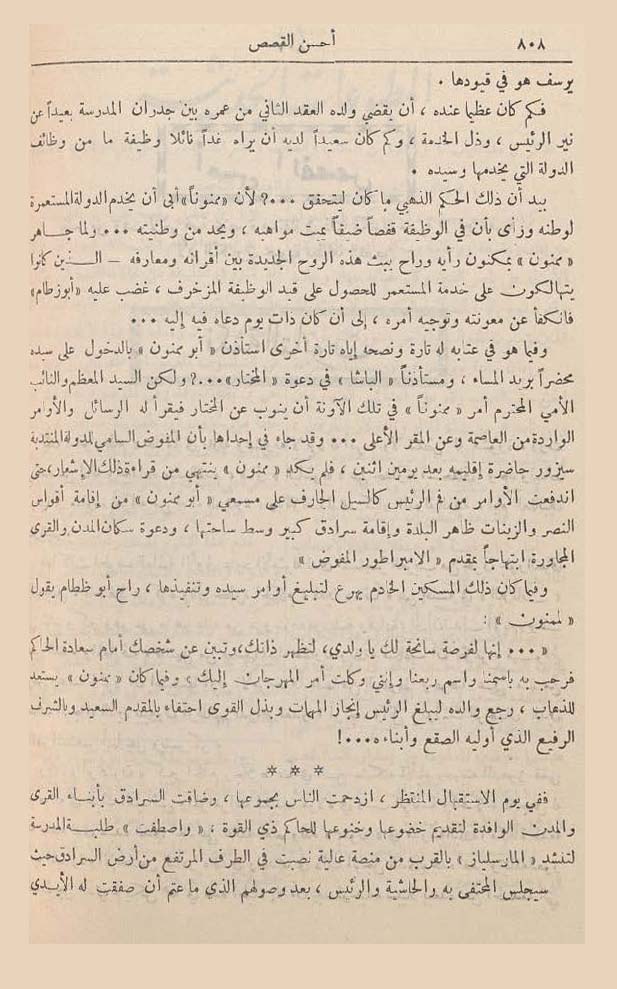 ٨٠٨ أحسن القصص
يرسف هو في قيودها .
فكم كان عظيما عنده ، أن يقضي ولده العقد الثاني من عمره بين جدران المدرسة بعيداً عن
نير الرئيس ، وذل الخدمة ، وكم كان سعيداً لديه أن يراه غداً نائلا وظيفة ما من وظائف
الدولة التي يخدمها وسيده .
بيد أن ذلك الحكم الذهبي ما كان ليتحقق ...؟ لأن «ممنوناً» أبى أن يخدم الدولة المستعمرة
لوطنه ورأى بأن في الوظيفة قفصاً ضيقاً يميت مواهبه ، ويحد من وطنيته ... ولما جاهر
« ممنون » بمكنون رأيه وراح يبث هذه الروح الجديدة بين أقرانه ومعارفه – الذين كانوا
يتهالكون على خدمة المستعمر للحصول على قيد الوظيفة المزخرف ، غضب عليه «أبوزطام»
فانكفأ عن معونته وتوجيه أمره ، إلى أن كان ذات يوم دعاه فيه إليه ...
وفيما هو في عتابه له تارة ونصحه إياه تارة أخرى استأذن « أبو ممنون » بالدخول على سيده
محضراً بريد المساء ، ومستأذناً « الباشا » في دعوة « المختار» ...؟ ولكن السيد المعظم والنائب
الأمي المحترم أمر « ممنوناً » في تلك الآونة أن ينوب عن المختار فيقرأ له الرسائل والأوامر
الواردة من العاصمة وعن المقر الأعلى ... وقد جاء في إحداها بأن المفوض السامي للدولة المنتدبة
سيزور حاضرة إقليمه بعد يومين اثنين ، فلم يكد « ممنون » ينتهي من قراءة ذلك الإشعار، حتى
اندفعت الأوامر من فم الرئيس كالسيل الجارف على مسمعي « أبو ممنون » من إقامة أقواس
النصر والزينات ظاهر البلدة وإقامة سرادق كبير وسط ساحتها ، ودعوة سكان المدن والقرى
المجاورة ابتهاجاً بمقدم « الامبراطور المفوض »
وفيما كان ذلك المسكين الخادم يهرع لتبليغ أوامر سيده وتنفيذها ، راح أبو ظطام يقول
« لممنون » :
« ... إنها لفرصة سانحة لك يا ولدي، لتظهر ذاتك، وتبين عن شخصك أمام سعادة الحاكم
فرحب به باسمنا واسم ربعنا وإنني وكلت أمر المهرجان إليك » وفيما كان « ممنون » يستعد
للذهاب ، رجع والده ليبلغ الرئيس إنجاز المهمات وبذل القوى احتفاء بالمقدم السعيد وبالشرف
الرفيع الذي أوليه الصقع وأبناءه ...!
* * *
ففي يوم الاستقبال المنتظر ، ازدحمت الناس بجموعها ، وضاقت السرادق بأبناء القرى
والمدن الوافدة لتقديم خضوعها وخنوعها للحاكم ذي القوة ، « واصطفت » طلبة المدرسة
لتنشد « المارسلياز » بالقرب من منصة عالية نصبت في الطرف المرتفع من أرض السرادق حيث
سيجلس المحتفى به والحاشية والرئيس ، بعد وصولهم الذي ما عتم أن صفقت له الأيدي